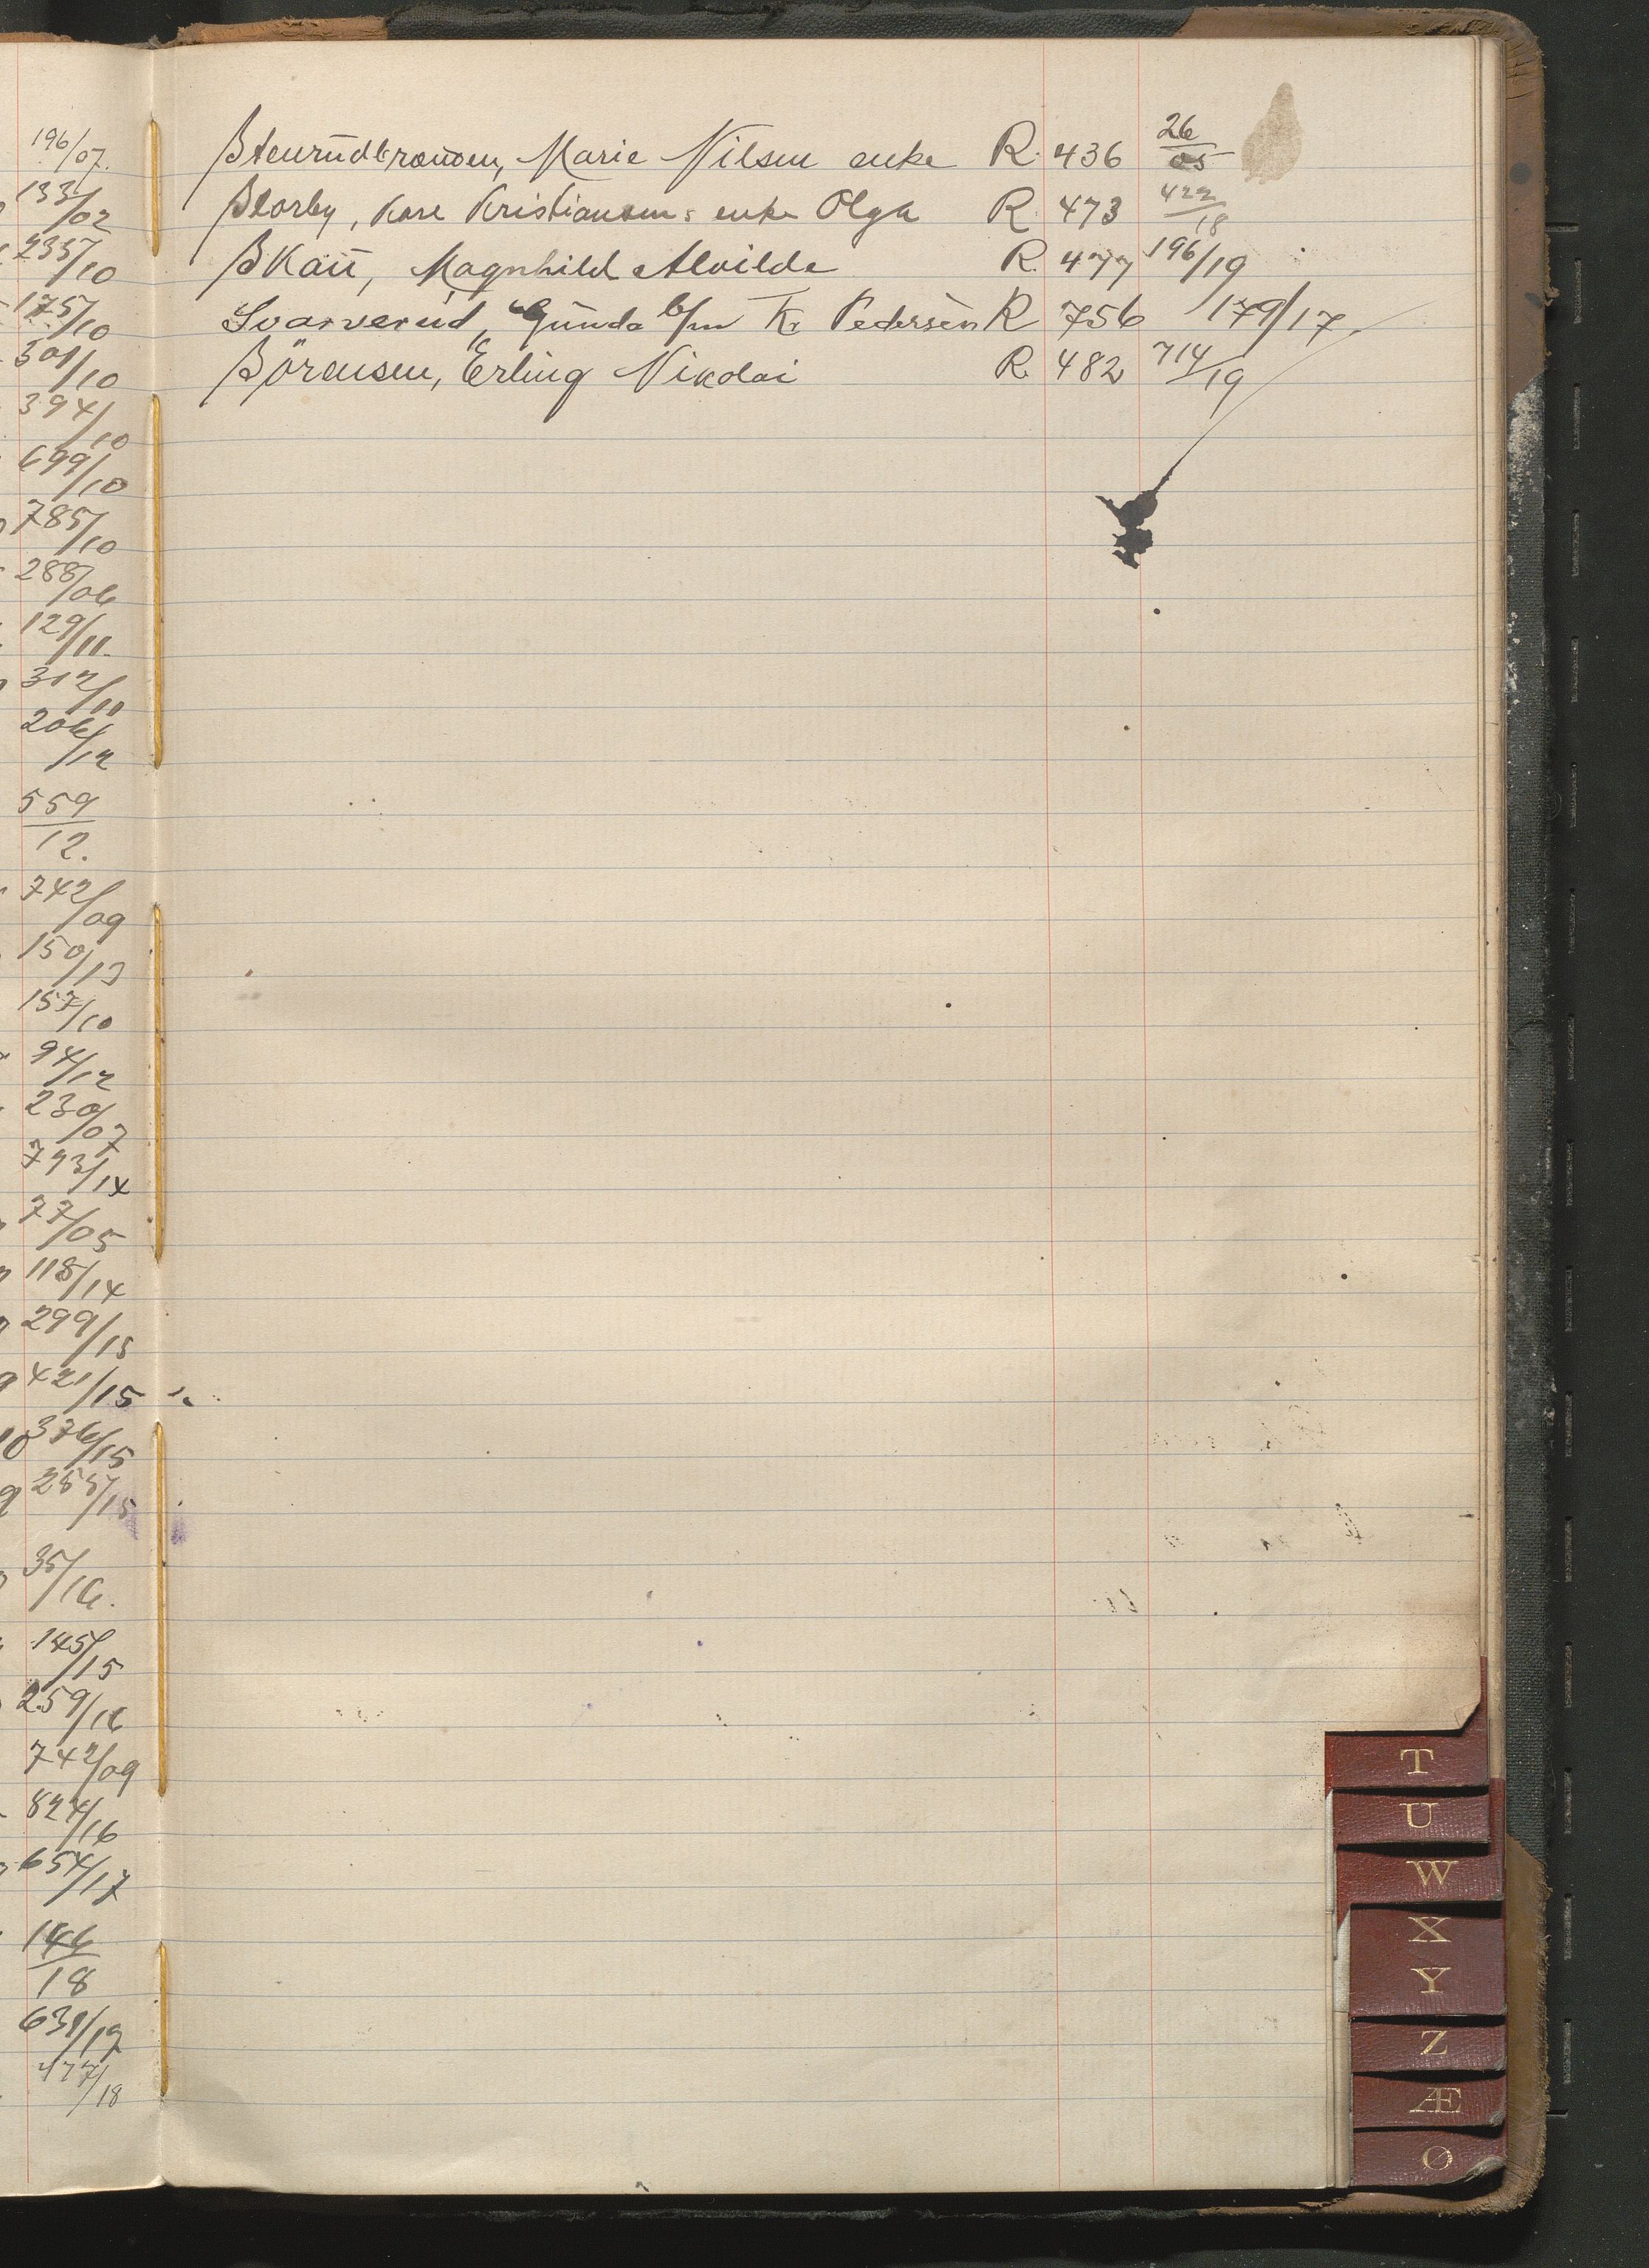 196/07.
133/02
235/10
175/10
501/10
394/10
699/10
785/10
288/06
129/11.
312/11
206/12
559
12.
742/09
150/13
157/10
94/12
230/07
793/14
77/05
118/14
299/15
421/15
376/15
255/15
35/16.
145/15
259/16
742/09
824/16
654/17
146
18
638/19
477/18
Stenrudbraaten, Marie Nilsen enke R. 436 26/05
Storby, Kare Kristiansens enke Olga R. 473 422/18
Skau, Magnhild Alvilde R. 477 196/19
Svarverud, Gunda b/m Kr Pedersen R 756 179/17.
Sörensen, Erling Nikolai R. 482 714/19
T
U
W
X
Y
Z
Æ
Ø